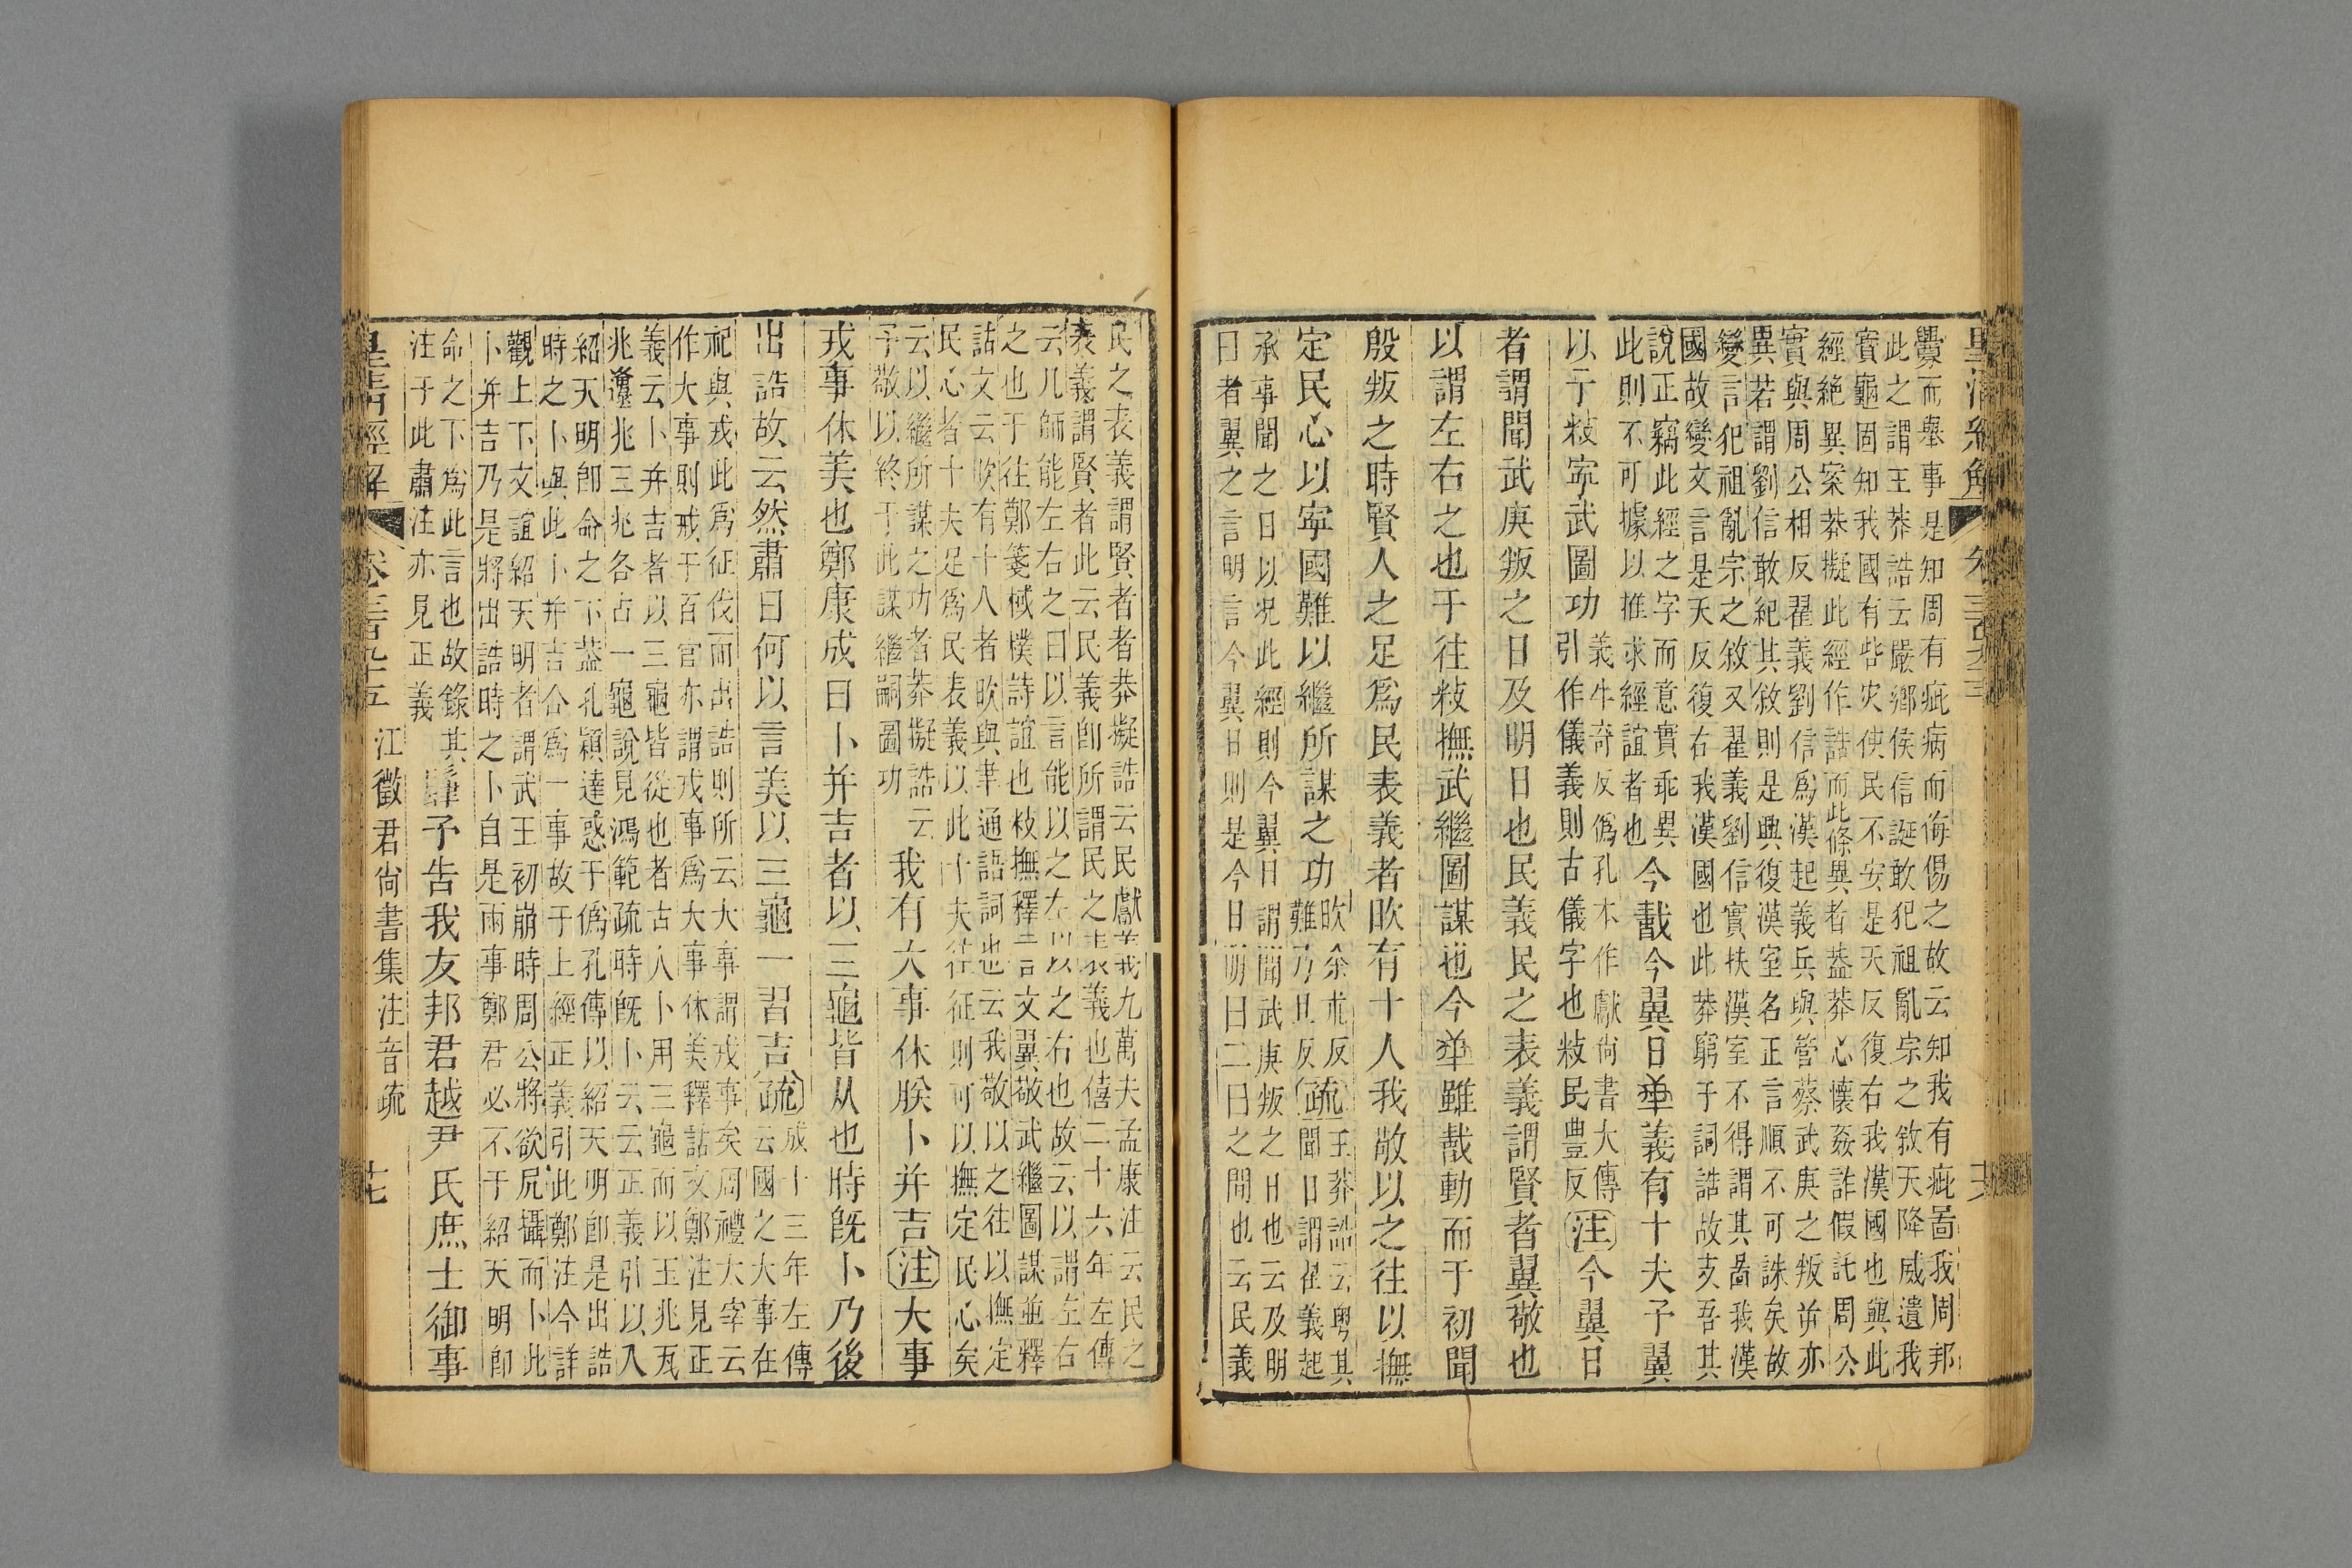 釁而舉事是知周有疵病而侮傷之故云知我有疵啚我周邦
此之謂王莽誥云嚴鄉侯信誕敢犯祖亂宗之敘天降威遺我
寶龜固知我國有呰灾使民不安是天反復右我漢國也與此
經絶異案莽擬此經作誥而此條異者葢莽心懷姦詐假託周公
實與周公相反翟義劉信爲漢起義兵與管蔡武庚之叛㒳亦
異若謂劉信敢紀其敘則是興復漢室名正言順不可誅矣故
變言犯祖亂宗之敘又翟義劉信實扶漢室不得謂其啚我漢
國故變文言是天反復右我漢國也此莽窮于詞誥故㕛吾其
說正竊此經之字而意實乖異
此則不可據以推求經誼者也
今戠今翼日𠦒義有十夫予翼
以于敉寍武圖功
義牛奇反僞孔本作獻尙書大傳
引作儀義則古儀字也敉民豊反
注今翼日
者謂聞武庚叛之日及明日也民義民之表義謂賢者翼敬也
以謂左右之也于往敉撫武繼圖謀也今𠦒雖戠動而于初聞
殷叛之時賢人之足爲民表義者㰦有十人我敬以之往以撫
定民心以寍國難以繼所謀之功
㰦余朮反
難乃旦反
疏
王莽誥云粵其
聞日謂翟義起
承事聞之日以况此經則今翼日謂聞武庚叛之日也云及明
日者翼之言明言今翼日則是今日明日二日之間也云民義
民之表義謂賢者者莽擬誥云民獻義我九萬夫孟康注云民之
表義謂賢者此云民義卽所謂民之表義也僖二十六年左傳
云凡師能左右之曰以言能以之左以之右也故云以謂左右
之也于往鄭箋棫樸詩誼也敉撫釋言文翼敬武繼圖謀並釋
詁文云㰦有十人者㰦與聿通語詞也云我敬以之往以撫定
民心者十夫足爲民表義以此十夫往征則可以撫定民心矣
云以繼所謀之功者莽擬誥云
予敬以終于此謀繼嗣圖功
我有大事休朕卜并吉注大事
戎事休美也鄭康成曰卜并吉者以三龜皆从也時旣卜乃後
出誥故云然肅曰何以言美以三龜一習吉疏
成十三年左傳
云國之大事在
祀與戎此爲征伐而出誥則所云大事謂戎事矣周禮大宰云
作大事則戒于百官亦謂戎事爲大事休美釋詁文鄭注見正
義云卜并吉者以三龜皆從也者古人卜用三龜而以玉兆瓦
兆𠧞兆三兆各占一龜說見鴻範疏時旣卜云云正義引以入
紹天明卽命之下葢孔穎達惑于僞孔傳以紹天明卽是出誥
時之卜與此卜并吉合爲一事故于上經正義引此鄭注今詳
觀上下文誼紹天明者謂武王初崩時周公將欲凥攝而卜此
卜并吉乃是將出誥時之卜自是兩事鄭君必不于紹天明卽
命之下爲此言也故錄其
注于此肅注亦見正義
肆予吿我友邦君越尹氏庶士御事
皇清經解 卷三百九十五 江徵君尙書集注音疏 十七